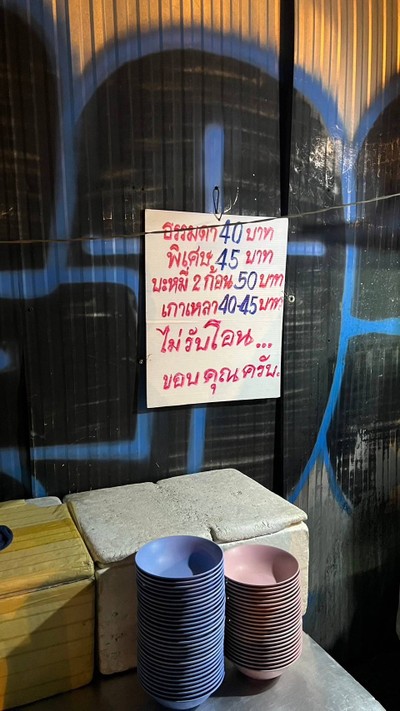 ธรรมดา 40 บาท
พิเศษ 45 บาท
บะหมี่ 2 ก้อน 50 บาท
เกาเหลา 40-45 บาท
ไม่รับโอน...
ขอบคุณครับ.